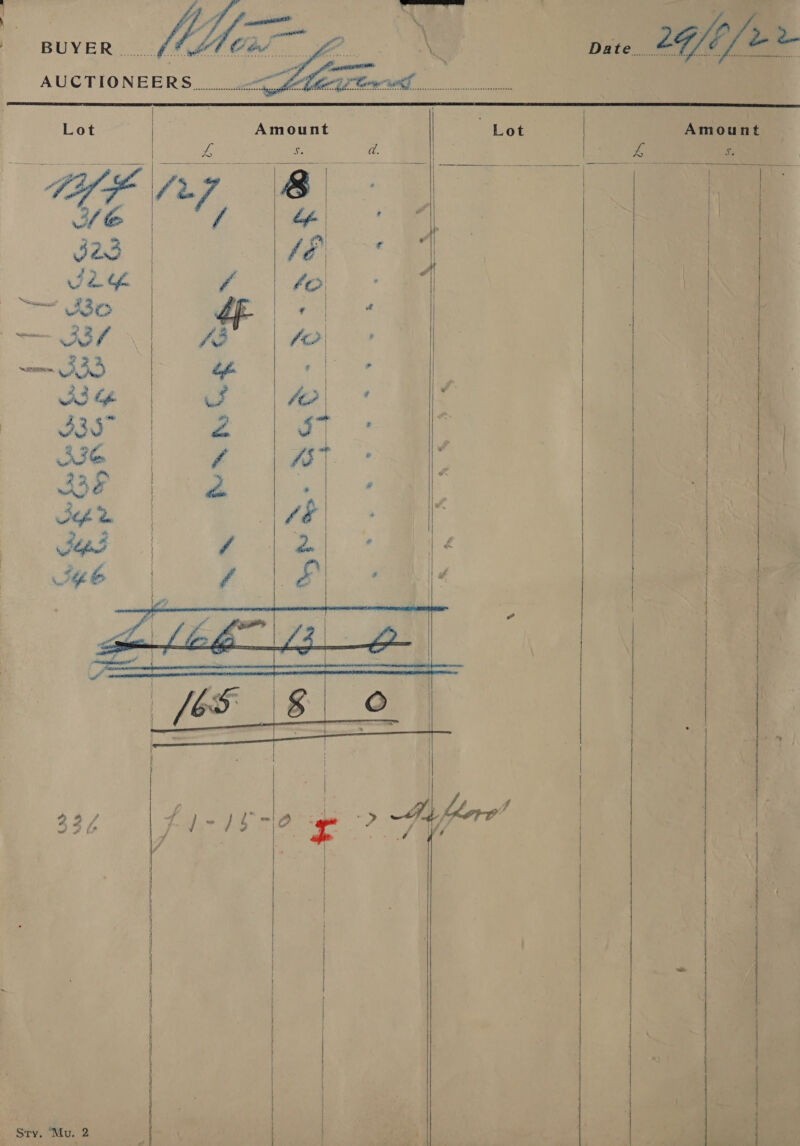 BUYER
Date 29/8/22
AUCTIONEERS Stevens
Lot Amount Lot Amount
£ s. d. £ s.
127 8 .
316 1 4 .
323 18 .
324 1 10 .
— 330 4 . .
— 331 13 10 .
— 333 4 . .
334 3 10 .
335 2 5 .
336 1 15 .
338 2 . .
342 18 .
343 1 2 .
346 1 8 .
13 0
165 8 0
336 £1-15-0 I -> Gifford
Sty. Mu. 2